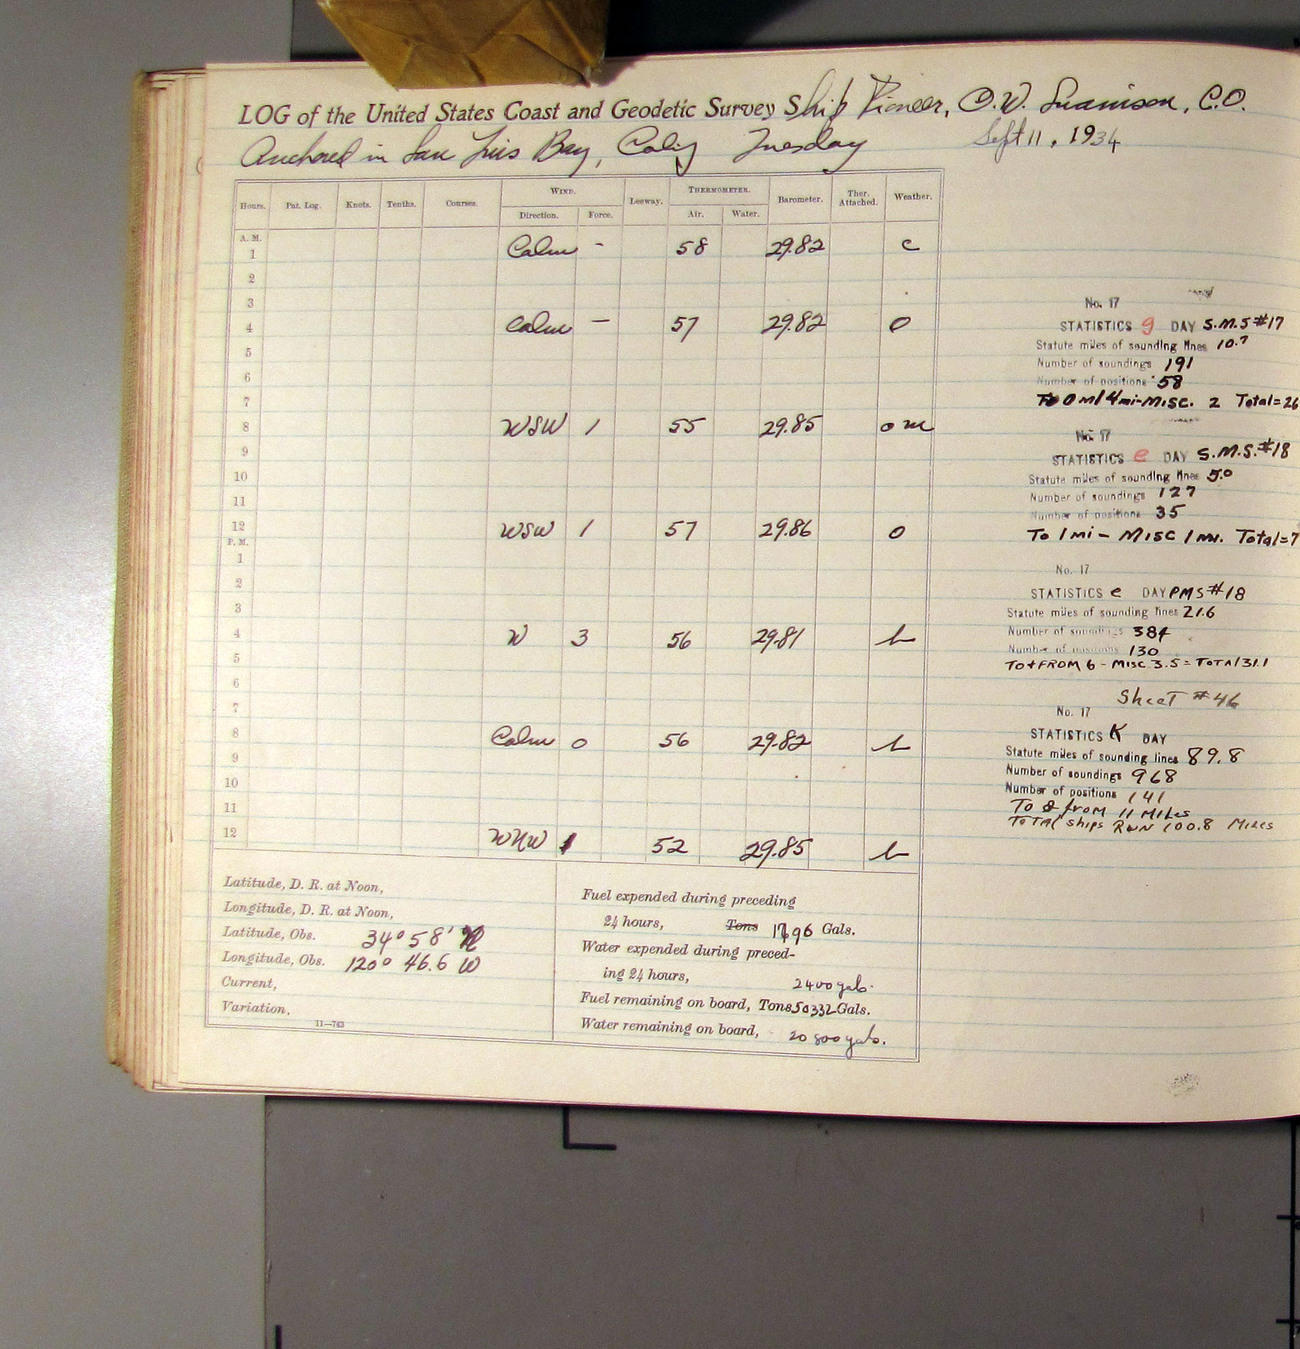 LOG of the United States Coast and Geodetic Survey Ship Pioneer, O.W. Swainson, C.O.
Anchored in San Luis Bay, Calif Tuesday Sept 11, 1934
Hours. Pat. Log. Knots. Tenths. Courses. WIND. Leeway. THERMOMETER. Barometer. Ther. Attached. Weather.
Direction. Force. Air. Water.
A. M.
1 Calm - 58 29.82 c
2
3
4 Calm - 57 29.82 o
5
6
7
8 WSW 1 55 29.85 o m
9
10
11
12 WSW 1 57 29.86 o
P. M.
1
2
3
4 W 3 56 29.81 b
5
6
7
8 Calm 0 56 29.82 b
9
10
11
12 WNW 1 52 29.85 b
Latitude, D. R. at Noon,
Longitude, D. R. at Noon,
Latitude, Obs. 34° 58' N
Longitude, Obs. 120° 46.6 W
Current,
Variation,
11—763
Fuel expended during preceding
24 hours, Tons 1796 Gals.
Water expended during preced-
ing 24 hours, 2400 gals.
Fuel remaining on board, Tons 50332 Gals.
Water remaining on board, 20 800 gals.
No. 17
STATISTICS g DAY S.M.S #17
Statute miles of sounding lines 10.7
Number of soundings 191
Number of positions 58
MISC. 2 Total = 26
No. 17
STATISTICS e DAY S.M.S. #18
Statute miles of sounding lines 5.0
Number of soundings 127
Number of positions 35
To 1 mi - MISC 1 mi. Total = 7
No. 17
STATISTICS e DAY PMS #18
Statute miles of sounding lines 21.6
Number of soundings 384
Number of positions 130
TO + FROM 6 - MISC 3.5 = TOTAl 31.1
SheeT #46
No. 17
STATISTICS K DAY
Statute miles of sounding lines 89.8
Number of soundings 968
Number of positions 141
To & from 11 MILes
TOTAl ships RUN 100.8 MILes